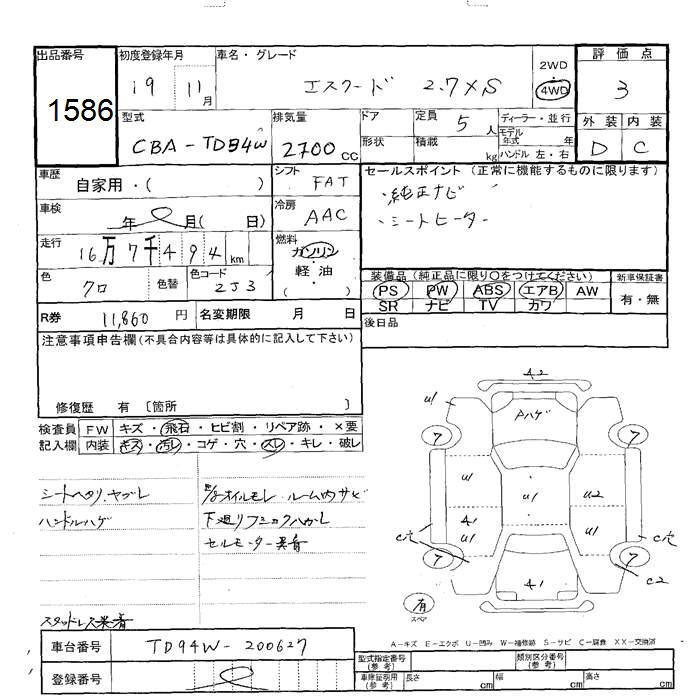 出品番号 1586
初度登録年月 19 11月
車名・グレード エスクード 2.7XS
2WD 4WD
評価点 3
外装 内装
D C
型式 CBA-TD94W
排気量 2700cc
ドア 形状
定員 5人
積載 kg
ディーラー・並行
モデル年式 年
ハンドル 左・右
車歴 自家用・( )
シフト FAT
セールスポイント (正常に機能するものに限ります)
・純正ナビ
・シートヒーター
車検 年 月( 日)
冷房 AAC
走行 16万7千494km
燃料 ガソリン・軽油・( )
色 クロ 色替 色コード ZJ3
装備品(純正品に限り○をつけてください)
PS PW ABS エアB AW
SR ナビ TV カワ
新車保証書 有・無
R券 11,860円 名変期限 月 日
後日品
注意事項申告欄(不具合内容等は具体的に記入して下さい)
修復歴 有 〔箇所 〕
検査員記入欄 FW キズ・飛石・ヒビ割・リペア跡・×要
内装 キズ・汚レ・コゲ・穴・スレ・キレ・破レ
シートヘタリ、ヤブレ
オイルモレ ルーム内サビ
ハンドルハゲ
下廻りフミコクハガレ
セルモーター異音
スタッドレス異音
A2
Pハゲ
U1
7 7
U1 U1 U2
A1 U1 U1
C穴 C穴
7 7
C2
A1
有 スペア
A-キズ E-エクボ U-凹み W-補修跡 S-サビ C-腐食 XX-交換済
車台番号 TD94W-200627
登録番号
型式指定番号(参考) 類別区分番号(参考)
車庫証明用(参考) 長さ cm 幅 cm 高さ cm